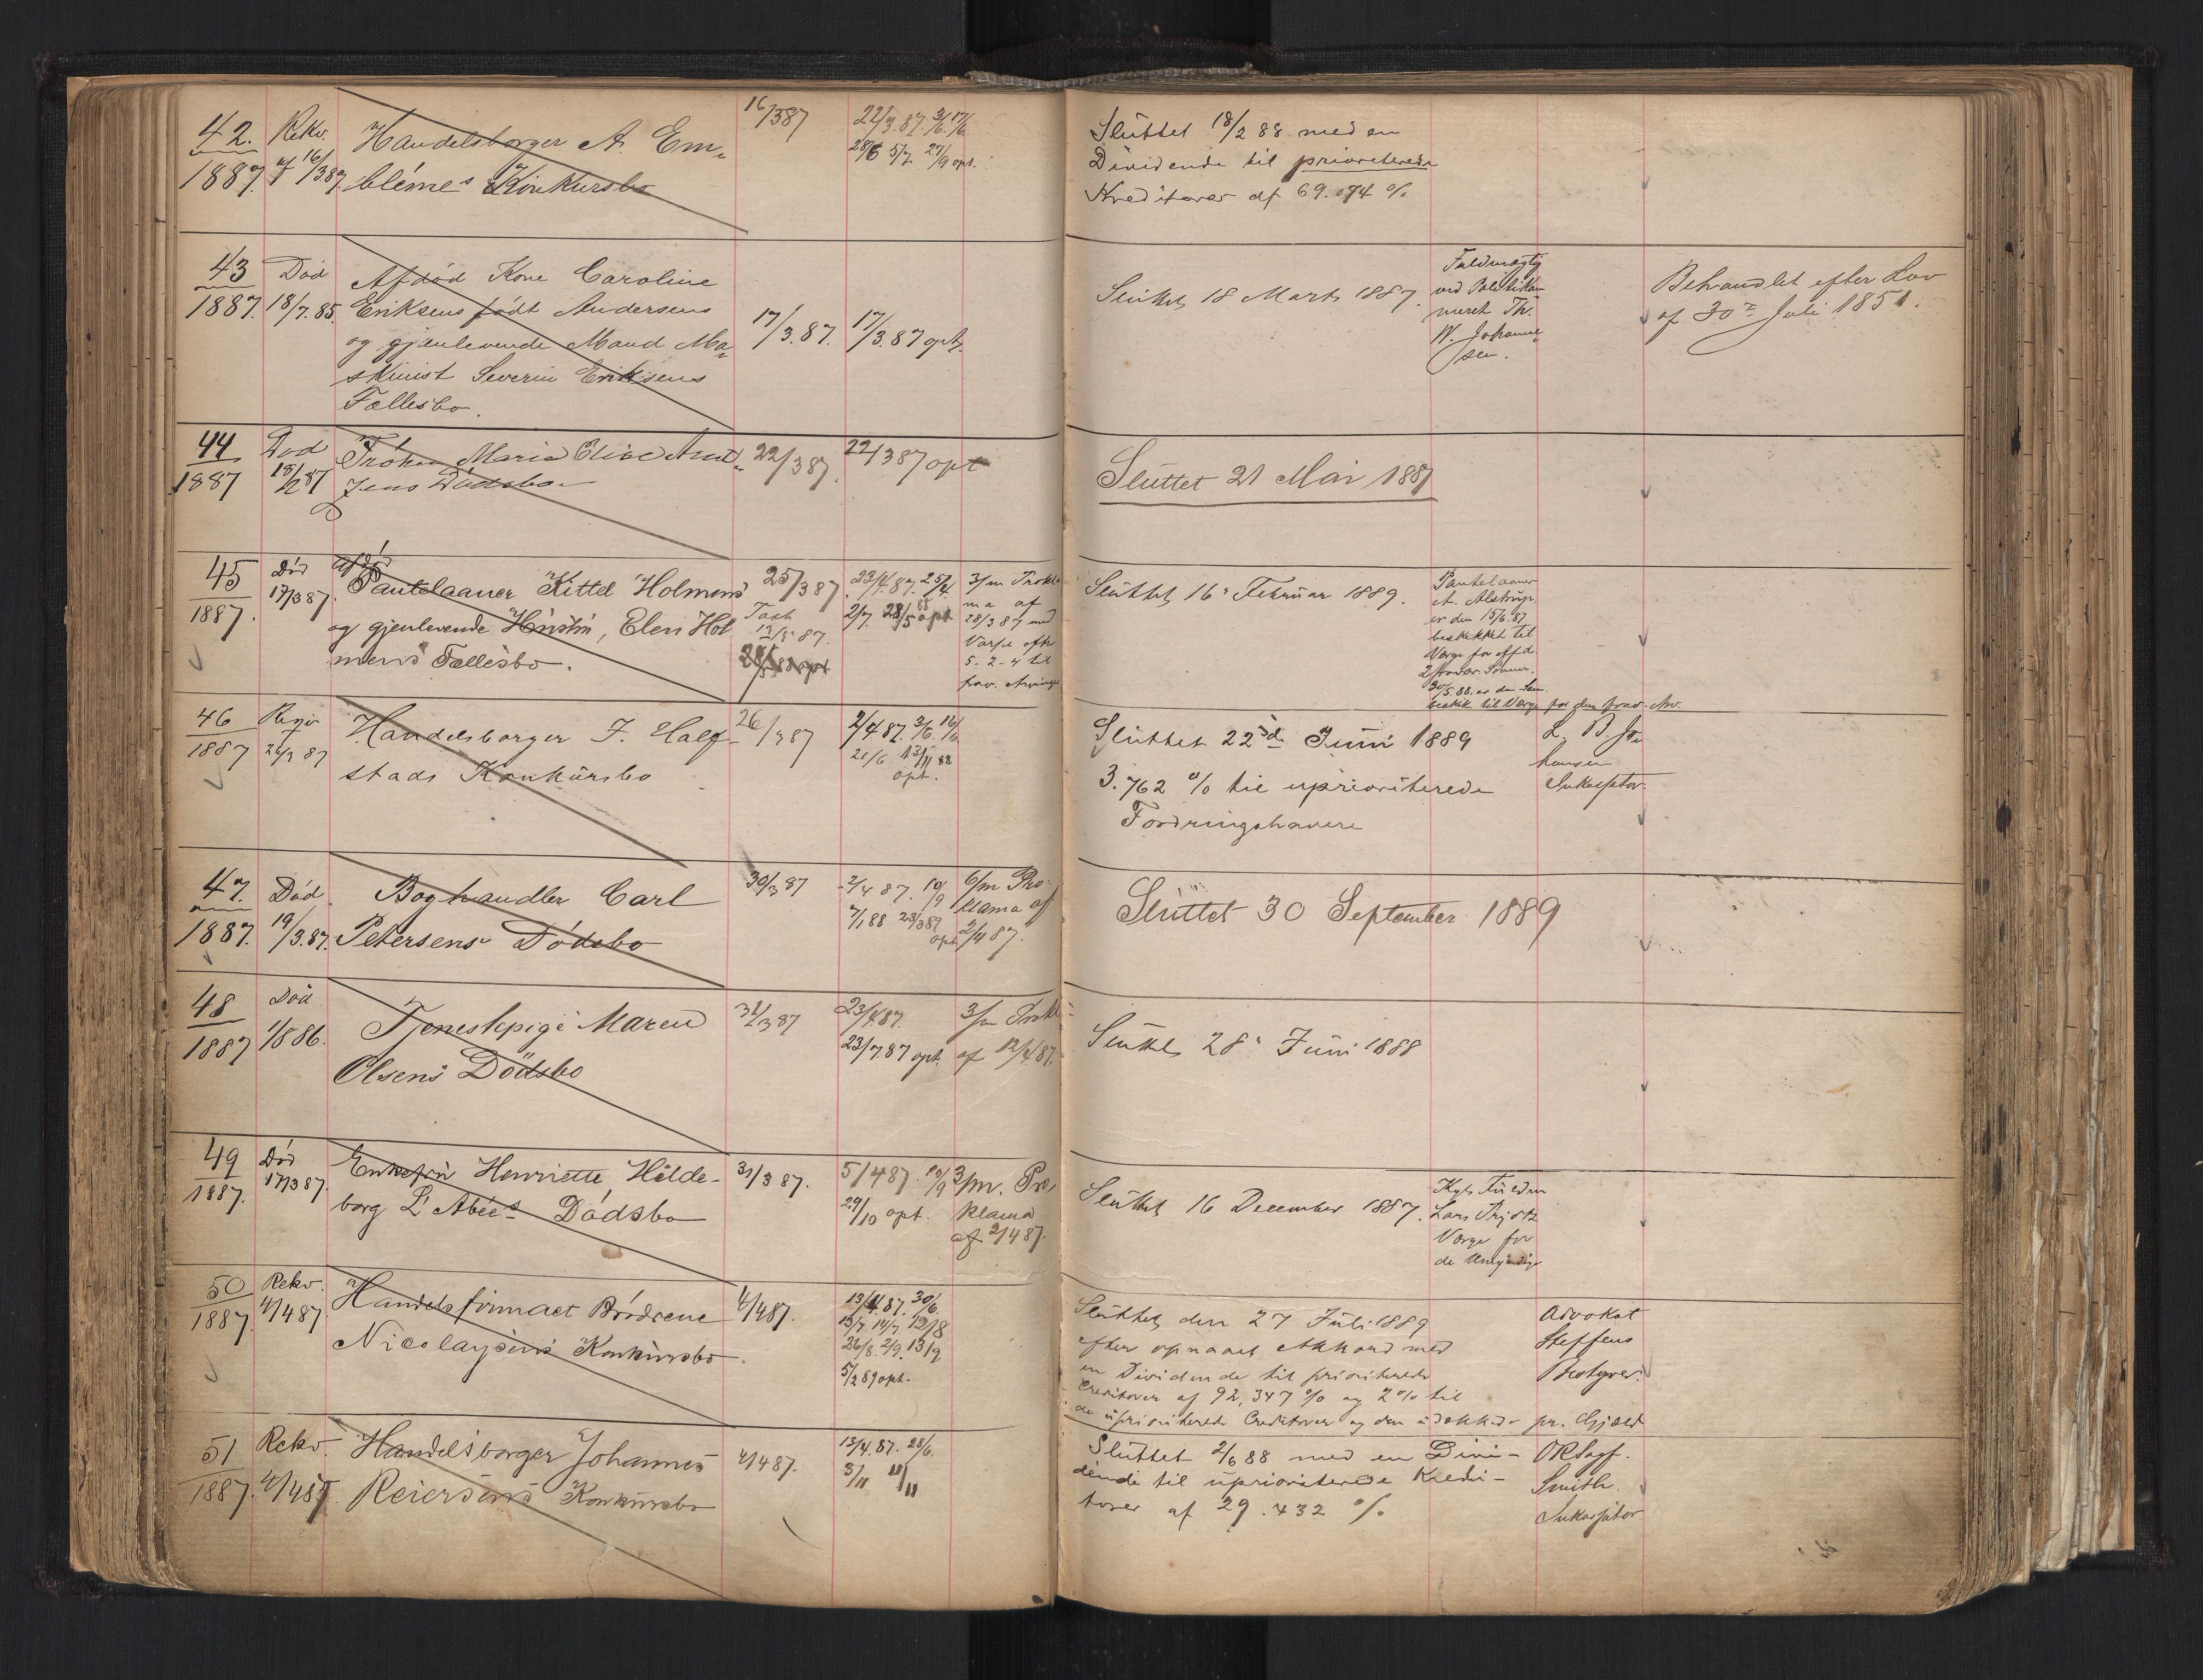 42.
1887.
Rekv.
af 16/3 87
Handelsborger A. Em-
blémes Konkursbo
16/3 87
22/3. 87. 3/6. 17/6
28/6 5/7. 27/9 opt.
Sluttet 18/2 88. med en
Dividende til prioriterede
Kreditorer af 69.074 %
43
1887.
Död
18/7. 85.
Afdød Kone Caroline
Eriksens født Andersens
og gjenlevende Mand Ma-
skinist Severin Eriksens
Fællesbo.
17/3. 87.
17/3. 87 opt.
Sluttet 18 Marts 1887.
Fuldmægtig
ved Politikam
meret Th.
W. Johanne-
sen.
Behandlet efter Lov
af 30te Juli 1851.
44
1887
Död
18/2 87
Frøken Maria Elise
Jens Dødsbo
22/3 87.
22/3 87 opt
Sluttet 21 Mai 1887
45
1887.
Död
17/3 87.
afdø
Pantelaaner Kittel Holmens
og gjenlevende Hustru, Elen Hol
mens Fællesbo.
25/3 87
Taxt
23/4. 87. 25/4.
2/7. 28/5 88 opt
3/m Prokla
ma af
28/3 87 med
Varsel efter
5-2-4 til
frav. Arvinge
Sluttet 16 Februar 1889.
Pantelaaner
A. Alstrup
er den 15/6. 87
beskikket til
Værge for afd.
30/5. 88. er den
beskik. til Værge for den frav. Arv.
46
1887
26/3 87
Handelsborger F. Half-
stads Konkursbo
26/3 87
2/4 87. 3/6. 16/6
21/6. 13/11 88
opt.
Sluttet 22de Juni 1889
3.762 % til uprioriterede
Fordringshavere
L. B. Jo
hansen
Inkassator
47.
1887.
Död
19/3. 87.
Boghandler Carl
Petersens Dødsbo
30/3 87
2/4 87. 10/9
7/1 88 23/3 89
opt
6/m Pro-
klama af
2/4 87.
Sluttet 30 September 1889
48
1887
Död
1/8 86.
Tjenestepige Maren
Olsens Dødsbo
31/3 87
23/4. 87.
23/7. 87 opt.
3/m Prokl
af 12/4 87.
Sluttet 28 Juni 1888
49
1887.
Död
17/3 87.
Enkefru Henriette Hilde-
borg L'Abées Dødsbo
31/3 87.
5/4 87. 10/9
29/10 opt.
3/m. Pro
klama
af 2/4 87.
Sluttet 16 December 1887.
Værge for
de Umyndige
50
1887.
Rekv.
4/4 87.
Handelsfirmaet Brødrene
Nicolaysens Konkursbo.
4/4 87.
13/4. 87. 30/6.
13/7 14/7 13/8
26/8. 2/9. 13/9
5/2 89 opt.
Sluttet den 27 Juli 1889
efter opnaaet Akkord med
en Dividende til prioriterede
Creditorer af 92,347 % og 2 % til
de uprioriterede Creditorer og den udækkede pr. Gjæld
Advokat
Steffens
Bestyrer
51
1887.
Rekv.
4/4 87.
Handelsborger Johannes
Reiersens Konkursbo
4/4 87.
13/4. 87. 28/6.
3/11 11/11
Sluttet 2/6 88 med en Divi-
dende til uprioriterede Kredi-
torer af 29.432 %
ORSagf.
Smith.
Inkassator